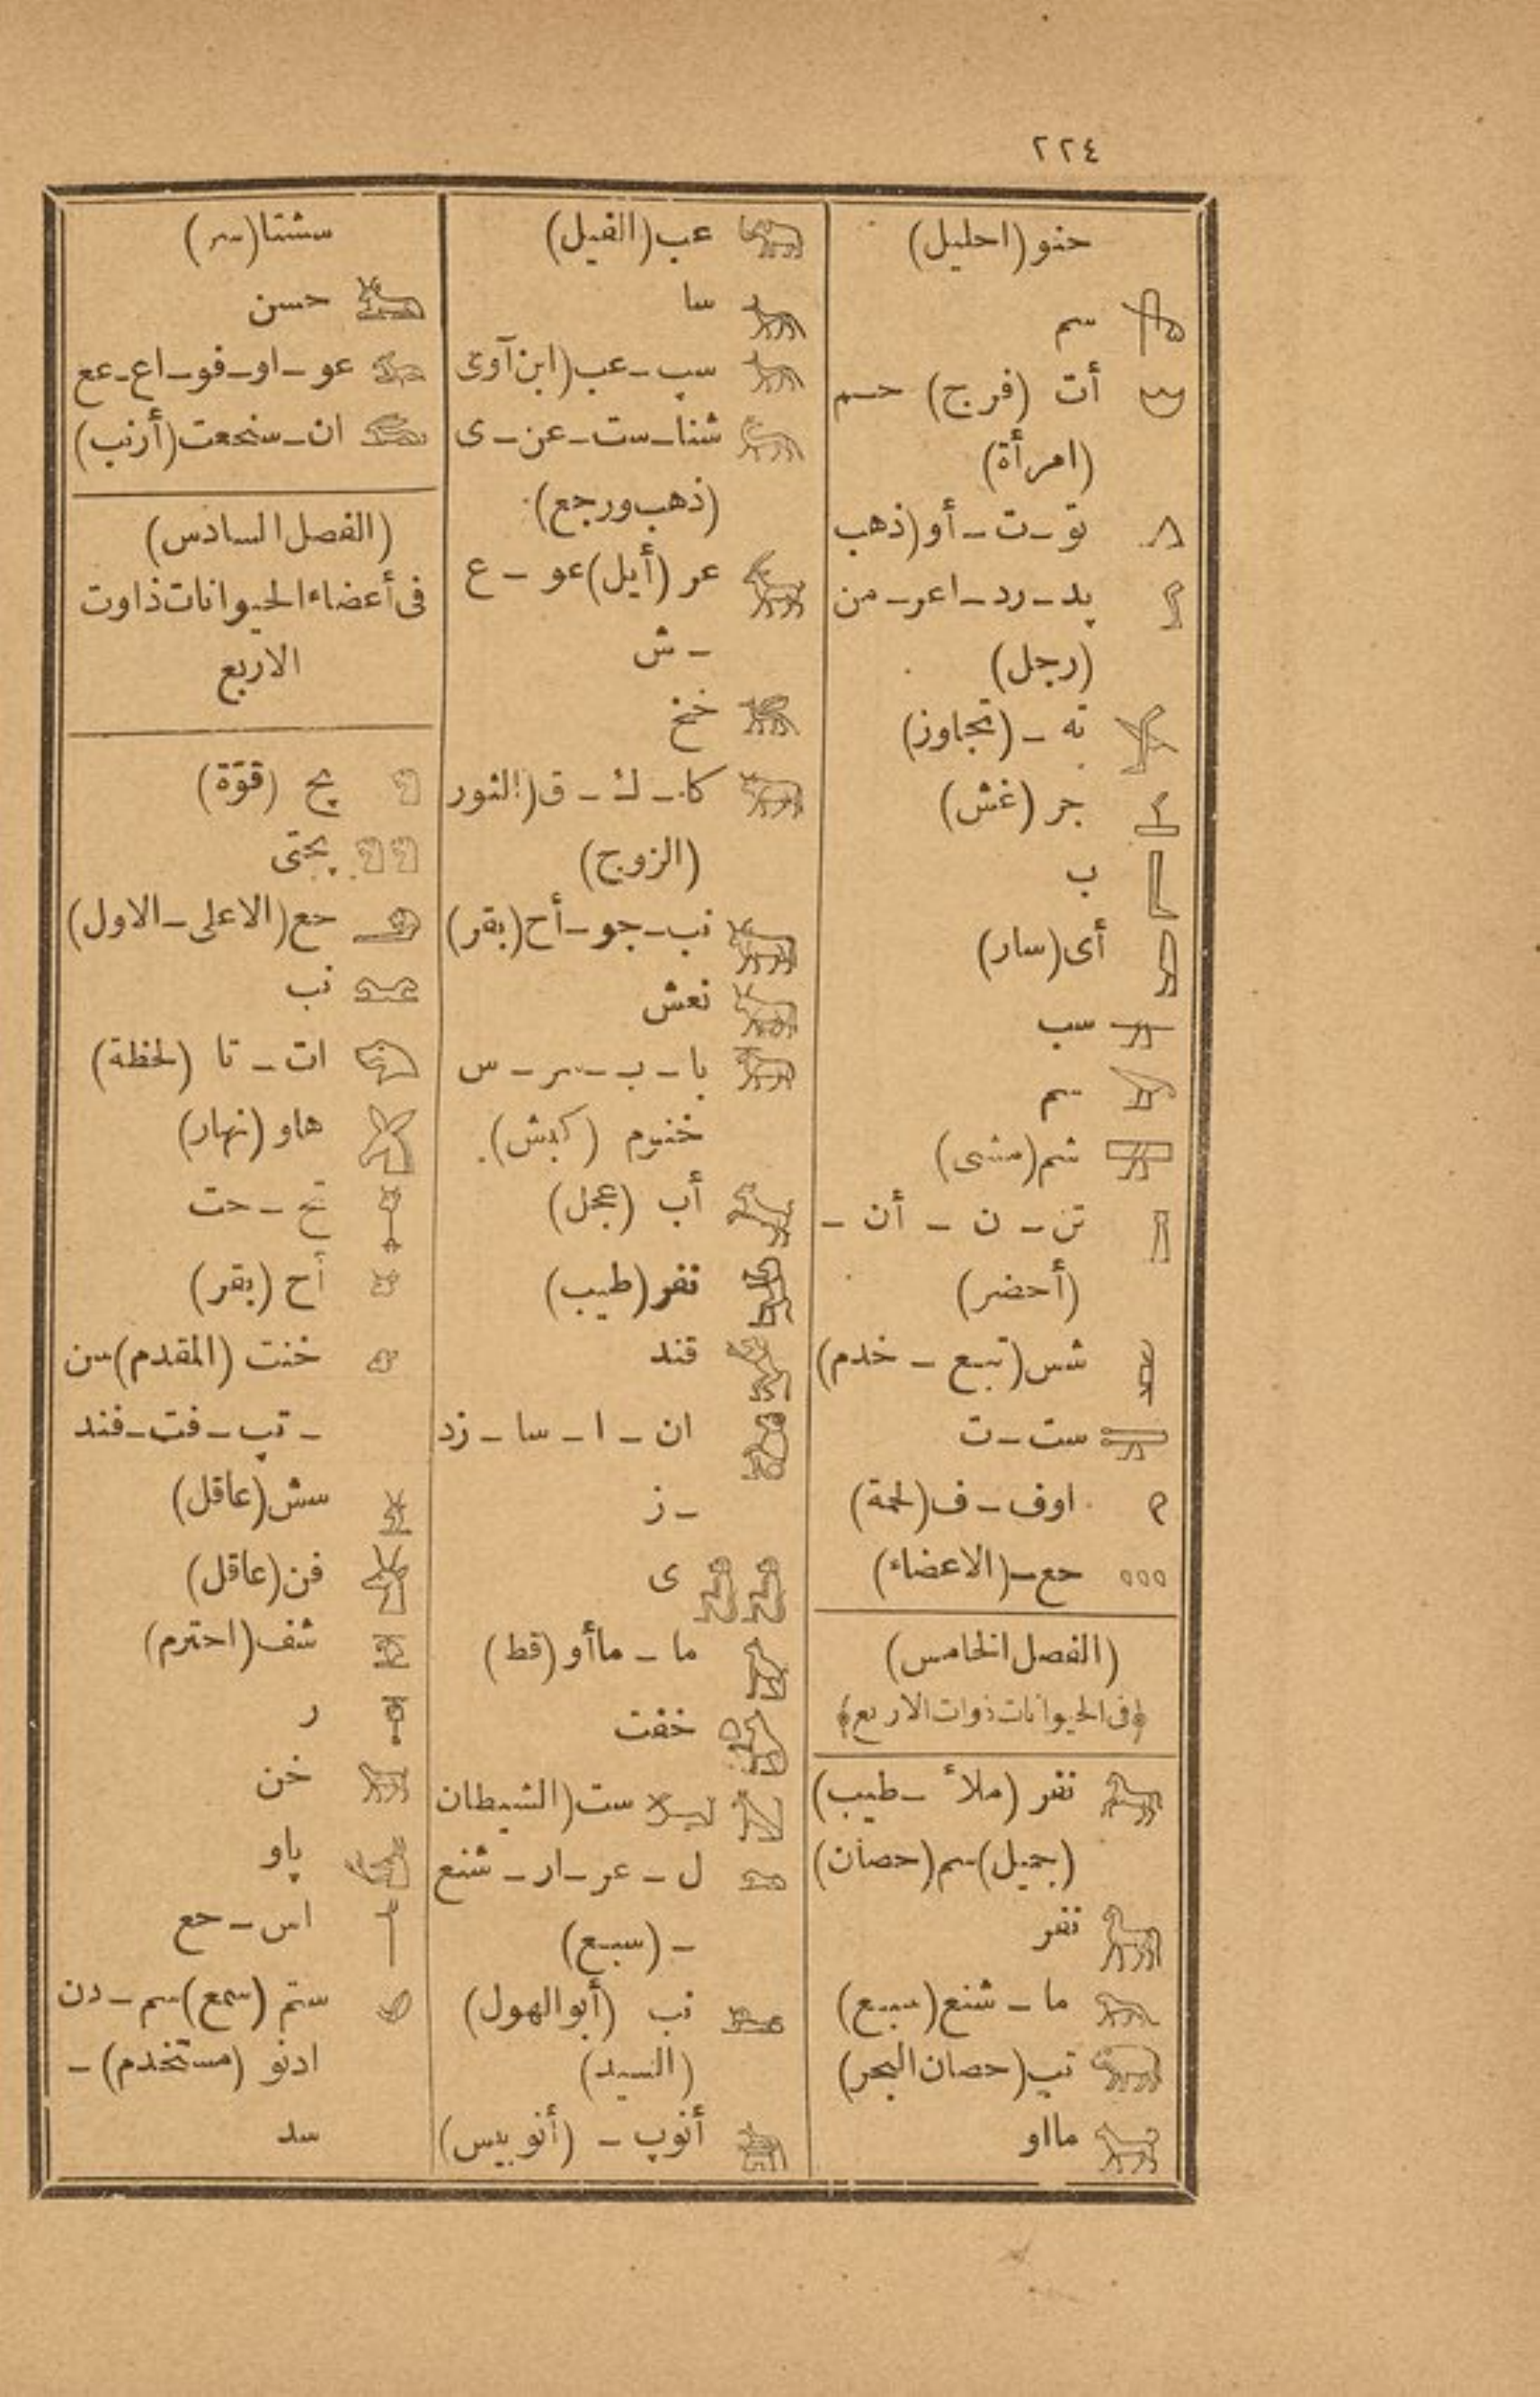 ٢٢٤
حنو (احليل)
سم
أت (فرج) حسم
(امرأة)
تو ــ ت ــ أو (ذهب
پد ــ رد ــ اعر ــ من
(رجل)
ته ــ (تجاوز)
جر (غش)
ب
أى (سار)
سب
سم
شم (مشى)
تن ــ ن ــ أن ــ
(أحضر)
شس (تبع ــ خدم)
ست ــ ت
اوف ــ ف (لحمة)
حع ــ (الاعضاء)
(الفصل الخامس)
﴿فى الحيوانات ذوات الاربع﴾
نفر (ملأ ــ طيب)
(جميل) سم (حصان)
نفر
ما ــ شنع (سبع)
تپ (حصان البحر)
مااو
عب (الفيل)
سا
سپ ــ عب (ابن آوى
شنا ــ ست ــ عن ــ ى
(ذهب ورجع)
عر (أيل) عو ــ ع
ــ ش
خخ
كا ــ ك ــ ق (الثور
(الزوج)
نب ــ جو ــ أح (بقر)
نعش
با ــ ب ــ سر ــ س
خنوم (كبش)
أب (عجل)
نفر (طيب)
قند
ان ــ ا ــ سا ــ زد
ــ ز
ى
ما ــ ماأو (قط)
خفت
ست (الشيطان
ل ــ عر ــ ار ــ شنع
ــ (سبع)
نب (أبو الهول)
(السيد)
أنوپ ــ (أنوبيس)
سشتا (سر)
حسن
عو ــ او ــ فو ــ اع ــ عع
ان ــ سنحعت (أرنب)
(الفصل السادس)
فى أعضاء الحيوانات ذاوت
الاربع
پح (قوّة)
پحتى
حع (الاعلى ــ الاول)
نب
ات ــ تا (لحظة)
هاو (نهار)
تخ ــ حت
أح (بقر)
خنت (المقدم) سن
ــ تپ ــ فت ــ فند
سش (عاقل)
فن (عاقل)
شف (احترم)
ر
خن
پاو
اس ــ حع
ستم (سمع) سم ــ دن
ادنو (مستخدم) ــ
سد